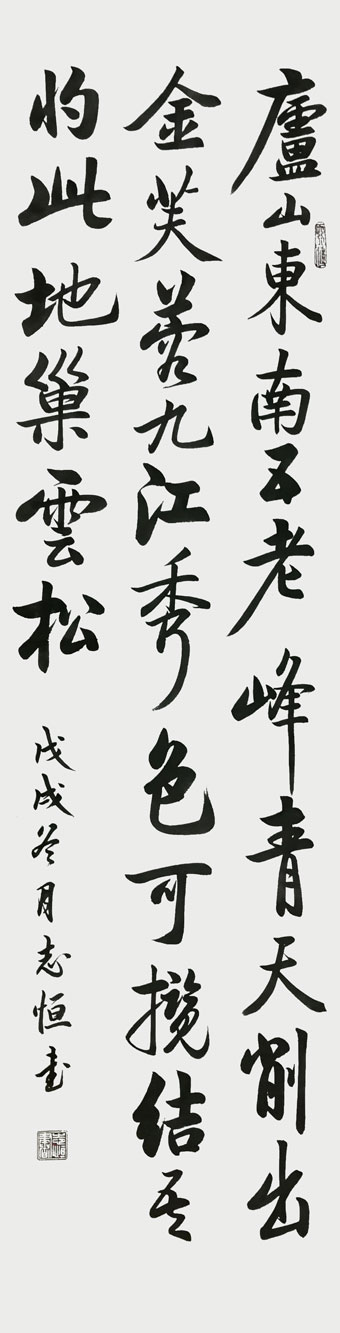 廬山東南五老峰青天削出
金芙蓉九江秀色可攬結吾
將此地巢雲松
戊戌冬月志恒書